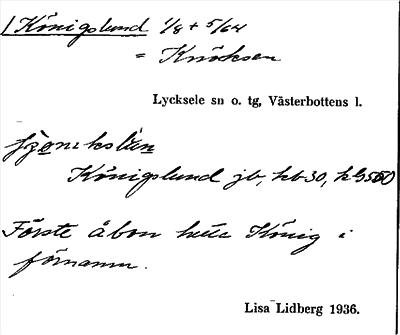 Königslund 1/8 + 5/64
= Knöksen
Lycksele sn o. tg, Västerbottens l.
Königslund jb, hb 30,
Förste åbon hette König i
förnamn.
Lisa Lidberg 1936.